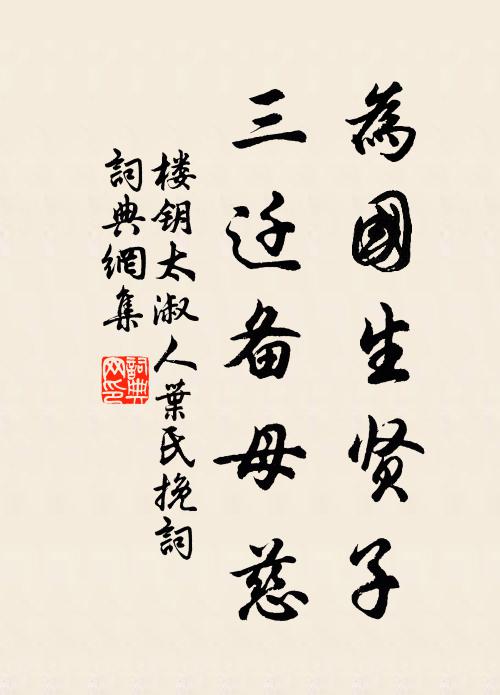 為國生贤子
三迁备母慈
楼钥太淑人葉氏挽詞
詞典網集
詞典网印